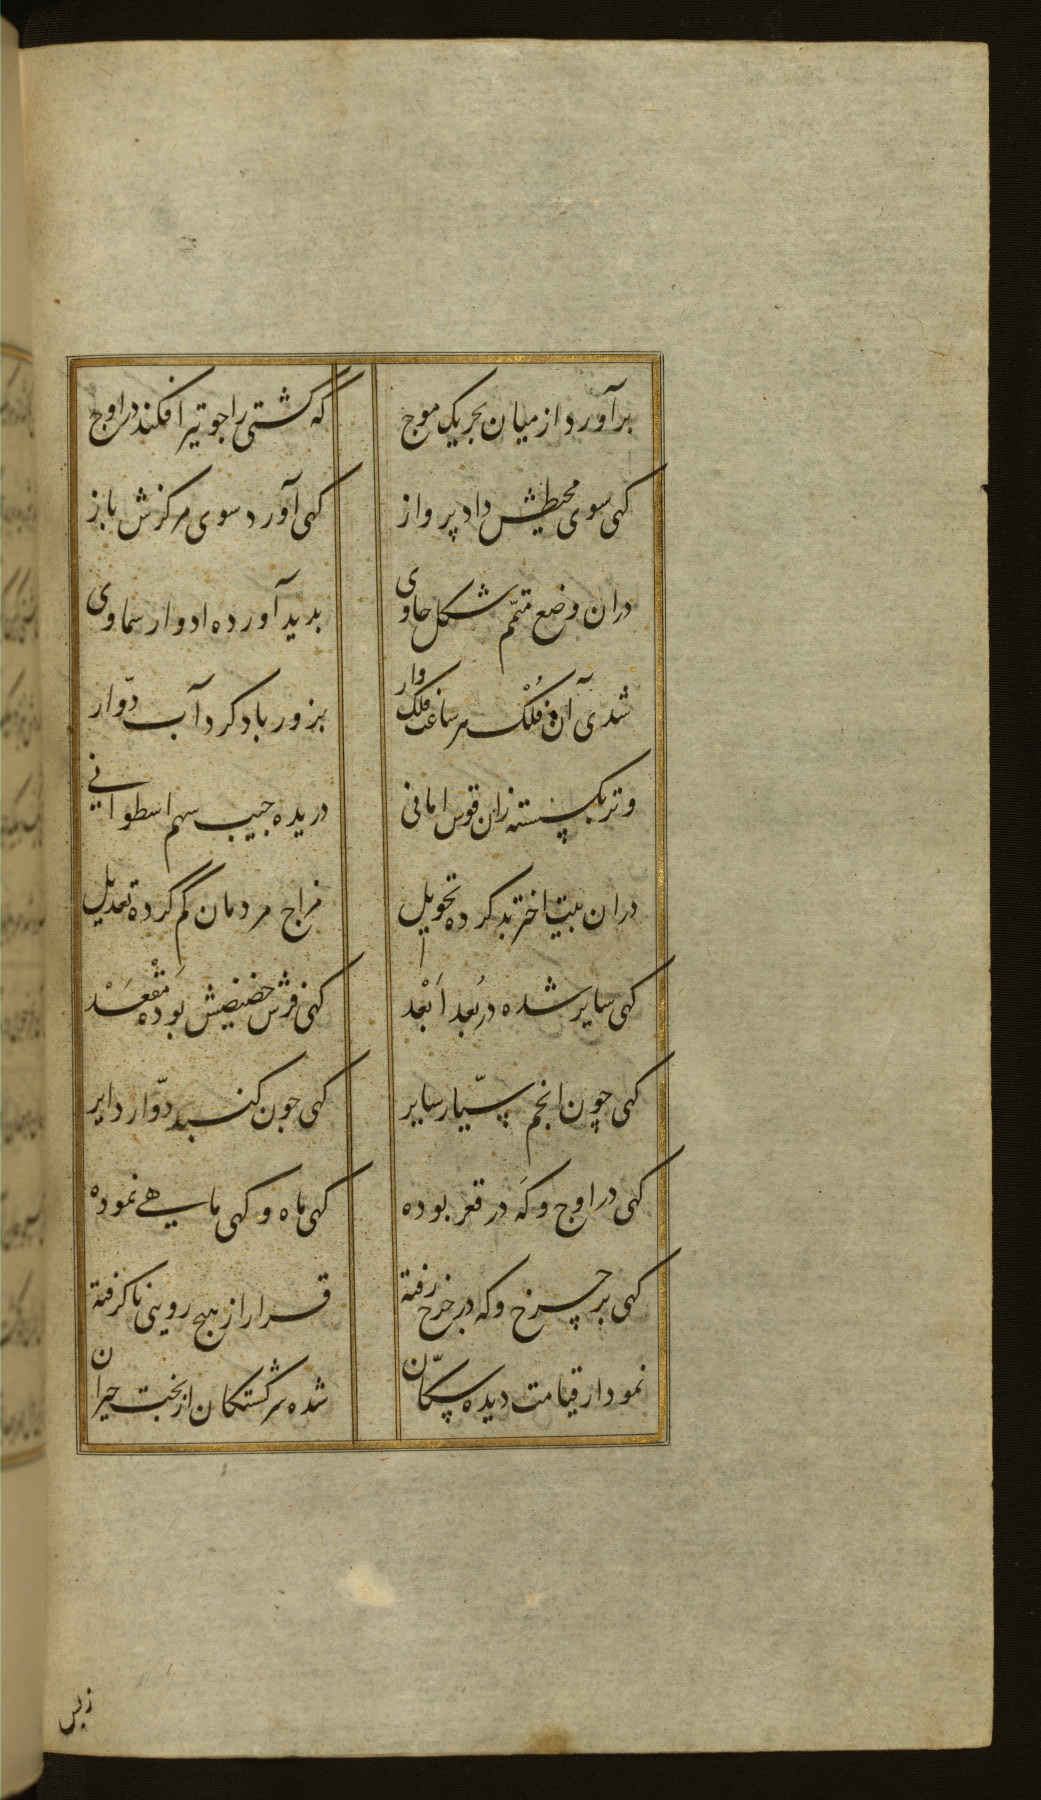 برآورد از میان بحر یک موج
که کشتی را جو تیر افکند در اوج
کهی سوی محیطش داد پرواز
کهی آورد سوی مرکزش باز
دران وضع متمم شکل حاوی
بدید آورده ادوار سماوی
شدی آن فلک هر ساعت فلک وار
بزور باد کرد آب دوار
وتر بکسسته زان قوس امانی
دریده جیب سهم اسطوانی
دران بیت اختر بد کرده تحویل
مزاج مردمان کم کرده تعدیل
کهی سایر شده در بُعد اَبْعد
کهی فرش حضیضیش بوده مَقْعَدْ
کهی چون انجم سیّار سایر
کهی جون کنبد دوّار دایر
کهی در اوج و که در قعر بوده
کهی ماه و کهی ماهی نموده
کهی بر چرخ و که در رفته
قرار از هیچ رویی نا کرفته
نمودار قیامت دیده سکّان
شده سرکشتکان از بخت حیران
زبس